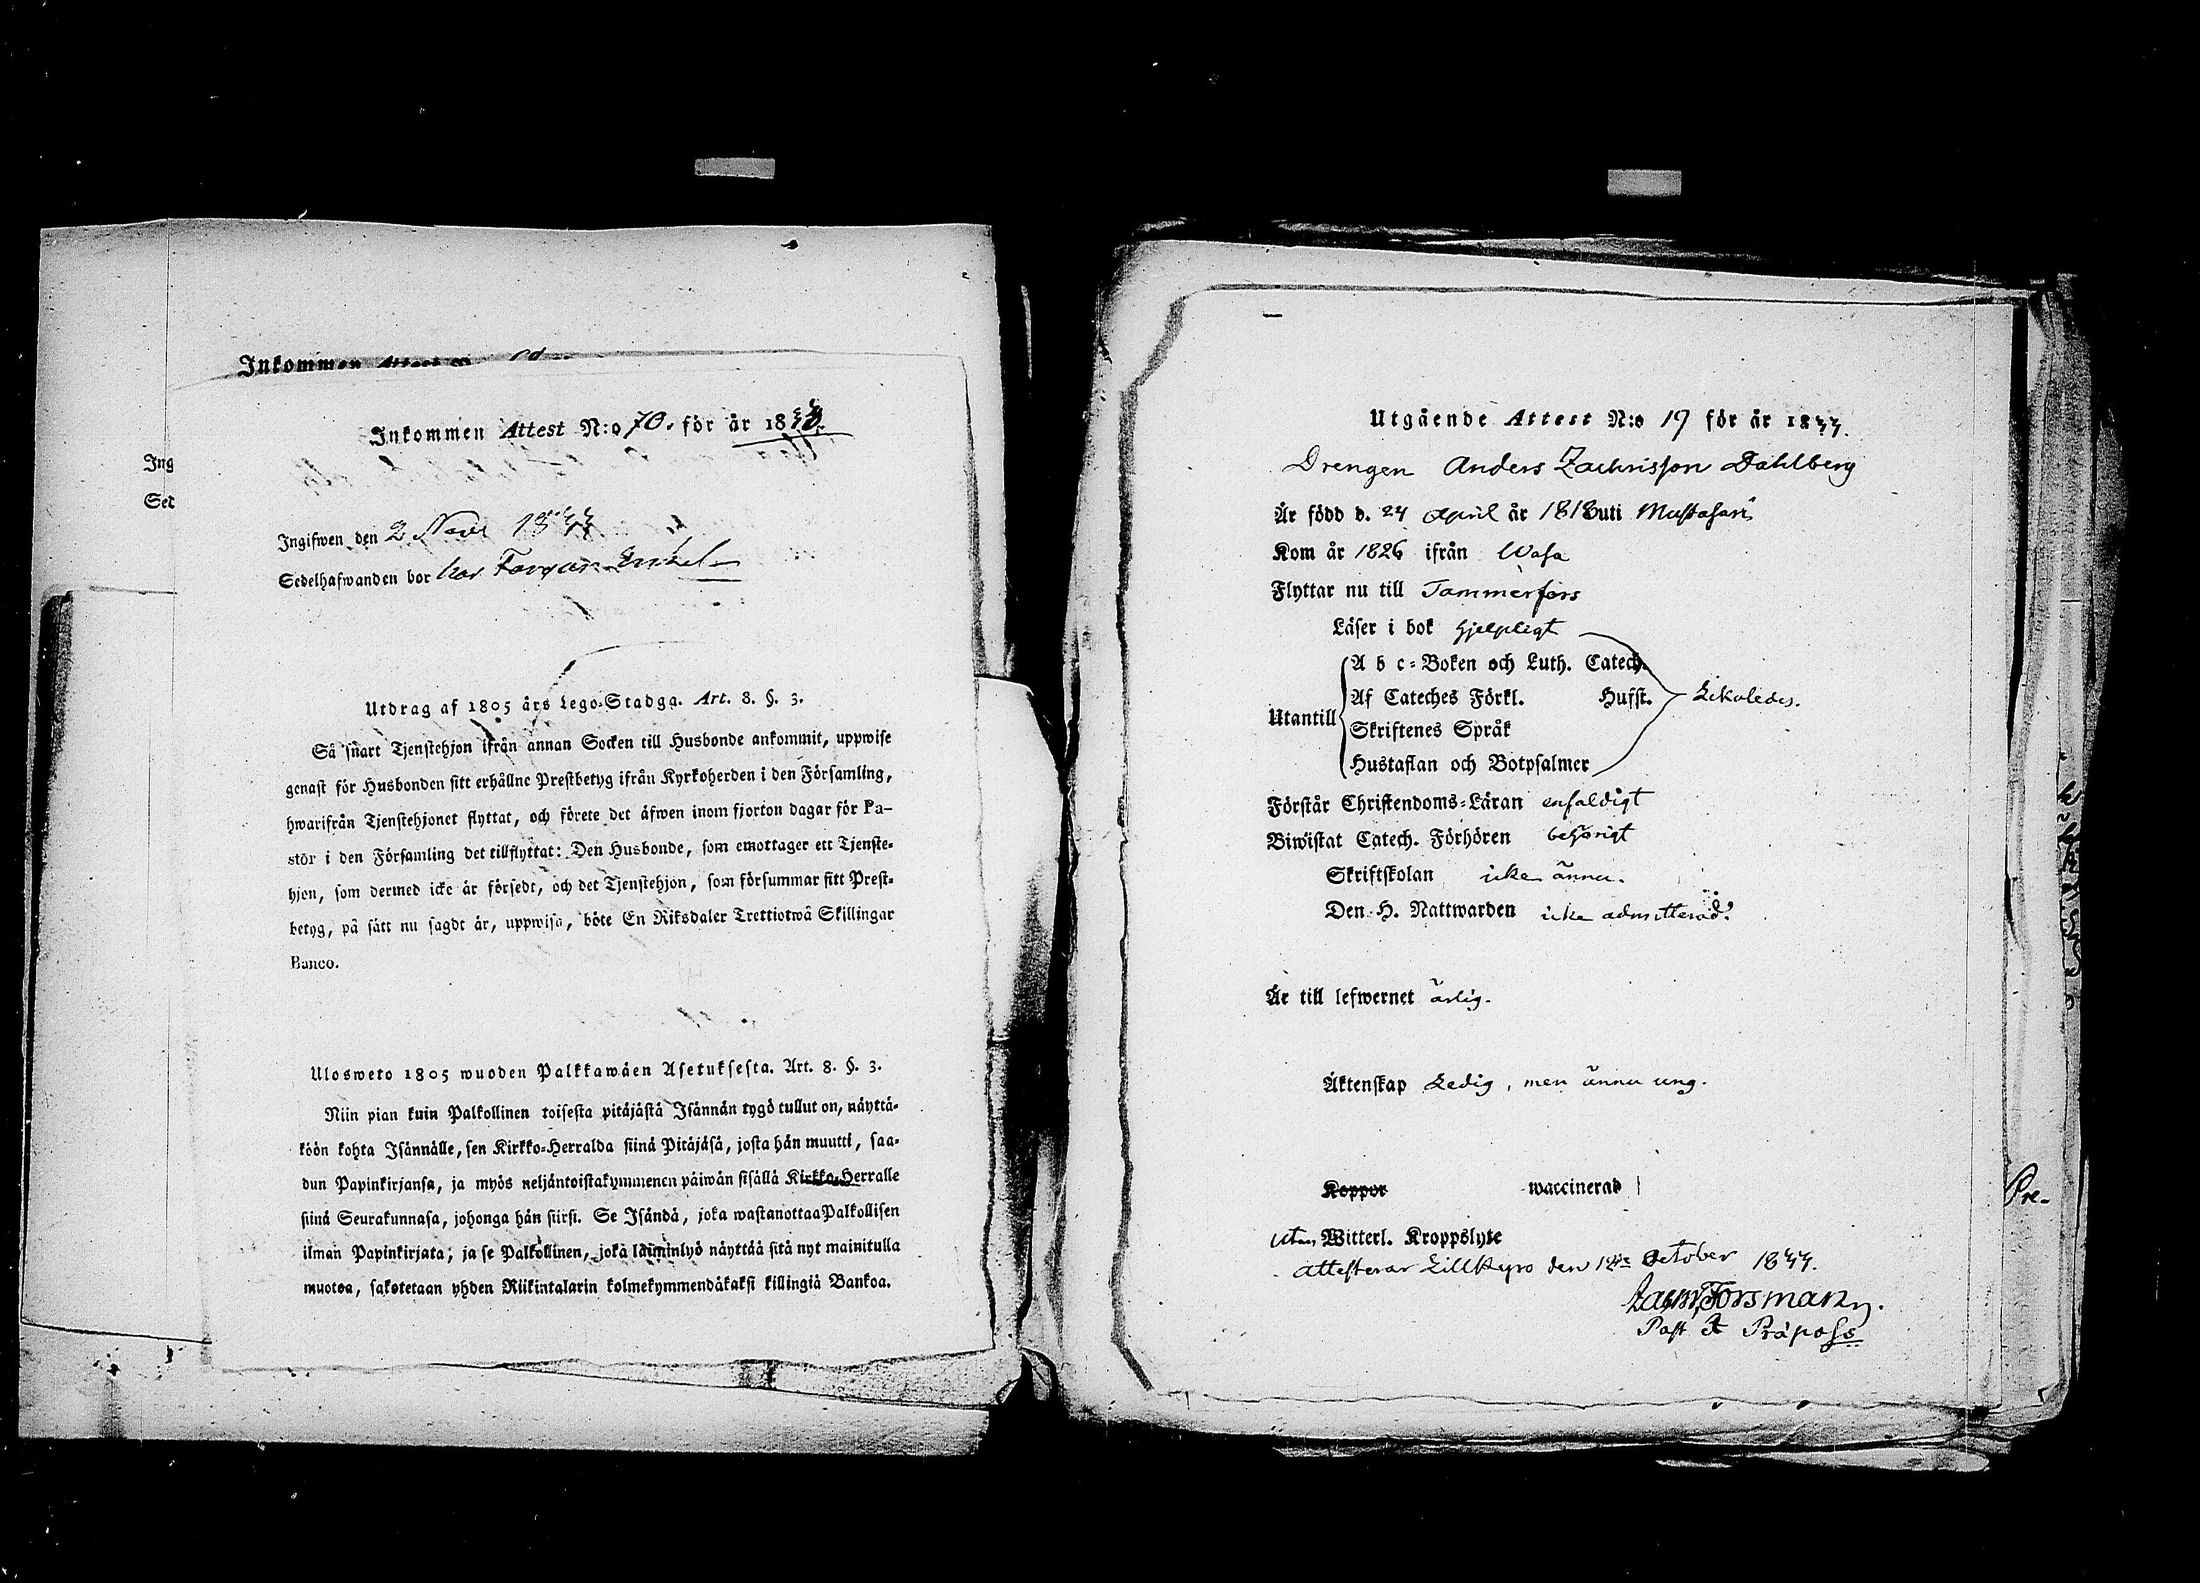 Inkommen Attest
Inkommen Attest N:o 70. för år 1833.
Ing
Sed
Ingifwen den 2 Novr 1833
Sedelhafwanden bor hos
Utdrag af 1805 års Lego-Stadga. Art. 8. §. 3.
Så snart Tjenstehjon ifrån annan Socken till Husbonde ankommit, uppwise
genast för Husbonden sitt erhållne Prestbetyg ifrån Kyrkoherden i den Församling,
hwarifrån Tjenstehjonet flyttat, och förete det äfwen inom fjorton dagar för Pa-
stor i den Församling det tillflyttat: Den Husbonde, som emottager ett Tjenste-
hjon, som dermed icke är försedt, och det Tjenstehjon, som försummar sitt Prest-
betyg, på sätt nu sagdt är, uppwisa, böte En Riksdaler Trettiotwå Skillingar
Banco.
Ulosweto 1805 wuoden Palkkawäen Asetuksesta. Art. 8. §. 3.
Niin pian kuin Palkollinen toisesta pitäjästä Isännän tygö tullut on, näyttä-
köön kohta Isännälle, sen Kirkko-Herralda siinä Pitäjäsä, josta hän muutti, saa-
dun Papinkirjansa, ja myös neljäntoistakymmenen päiwän sisällä Kirkko-Herralle
siinä Seurakunnasa, johonga hän siirsi. Se Isändä, joka wastanottaa Palkollisen
ilman Papinkirjata; ja se Palkollinen, joka laiminlyö näyttää sitä nyt mainitulla
muotoa, sakotetaan yhden Riikintalarin kolmekymmendäkaksi killingiä Bankoa.
Utgående Attest N:o 19 för år 1833.
Drengen Anders Zachrisson Dahlberg
Är född d. 24 April år 1818 uti Mustasari
Kom år 1826 ifrån Wasa
Flyttar nu till Tammerfors
Läser i bok hjelpligt
A b c-Boken och Luth. Catech.
Af Cateches Förkl. Husst. Likaledes.
Utantill
Skriftenes Språk
Hustaflan och Botpsalmer
Förstår Christendoms-Läran enfaldigt
Biwistat Catech. Förhören behörigt
Skriftskolan icke ännu.
Den H. Nattwarden icke admitterad.
Är till lefwernet ärlig.
Äktenskap Ledig, men ännu ung.
Koppor waccinerad
utan Witterl. Kroppslyte
Attesterar Lillkyro den October 1833.
Zachr Forsman
Past & Præpos
Pre-